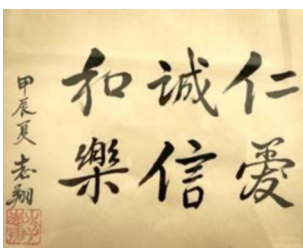 仁愛
誠信
和樂
甲辰夏 志翔